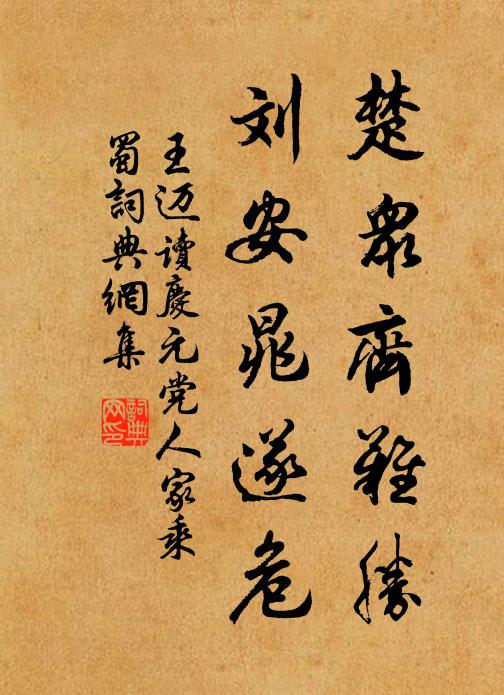 楚衆齊難勝
刘安晁遂危
王迈讀慶元党人家乘
蜀詞典網集
詞典網印